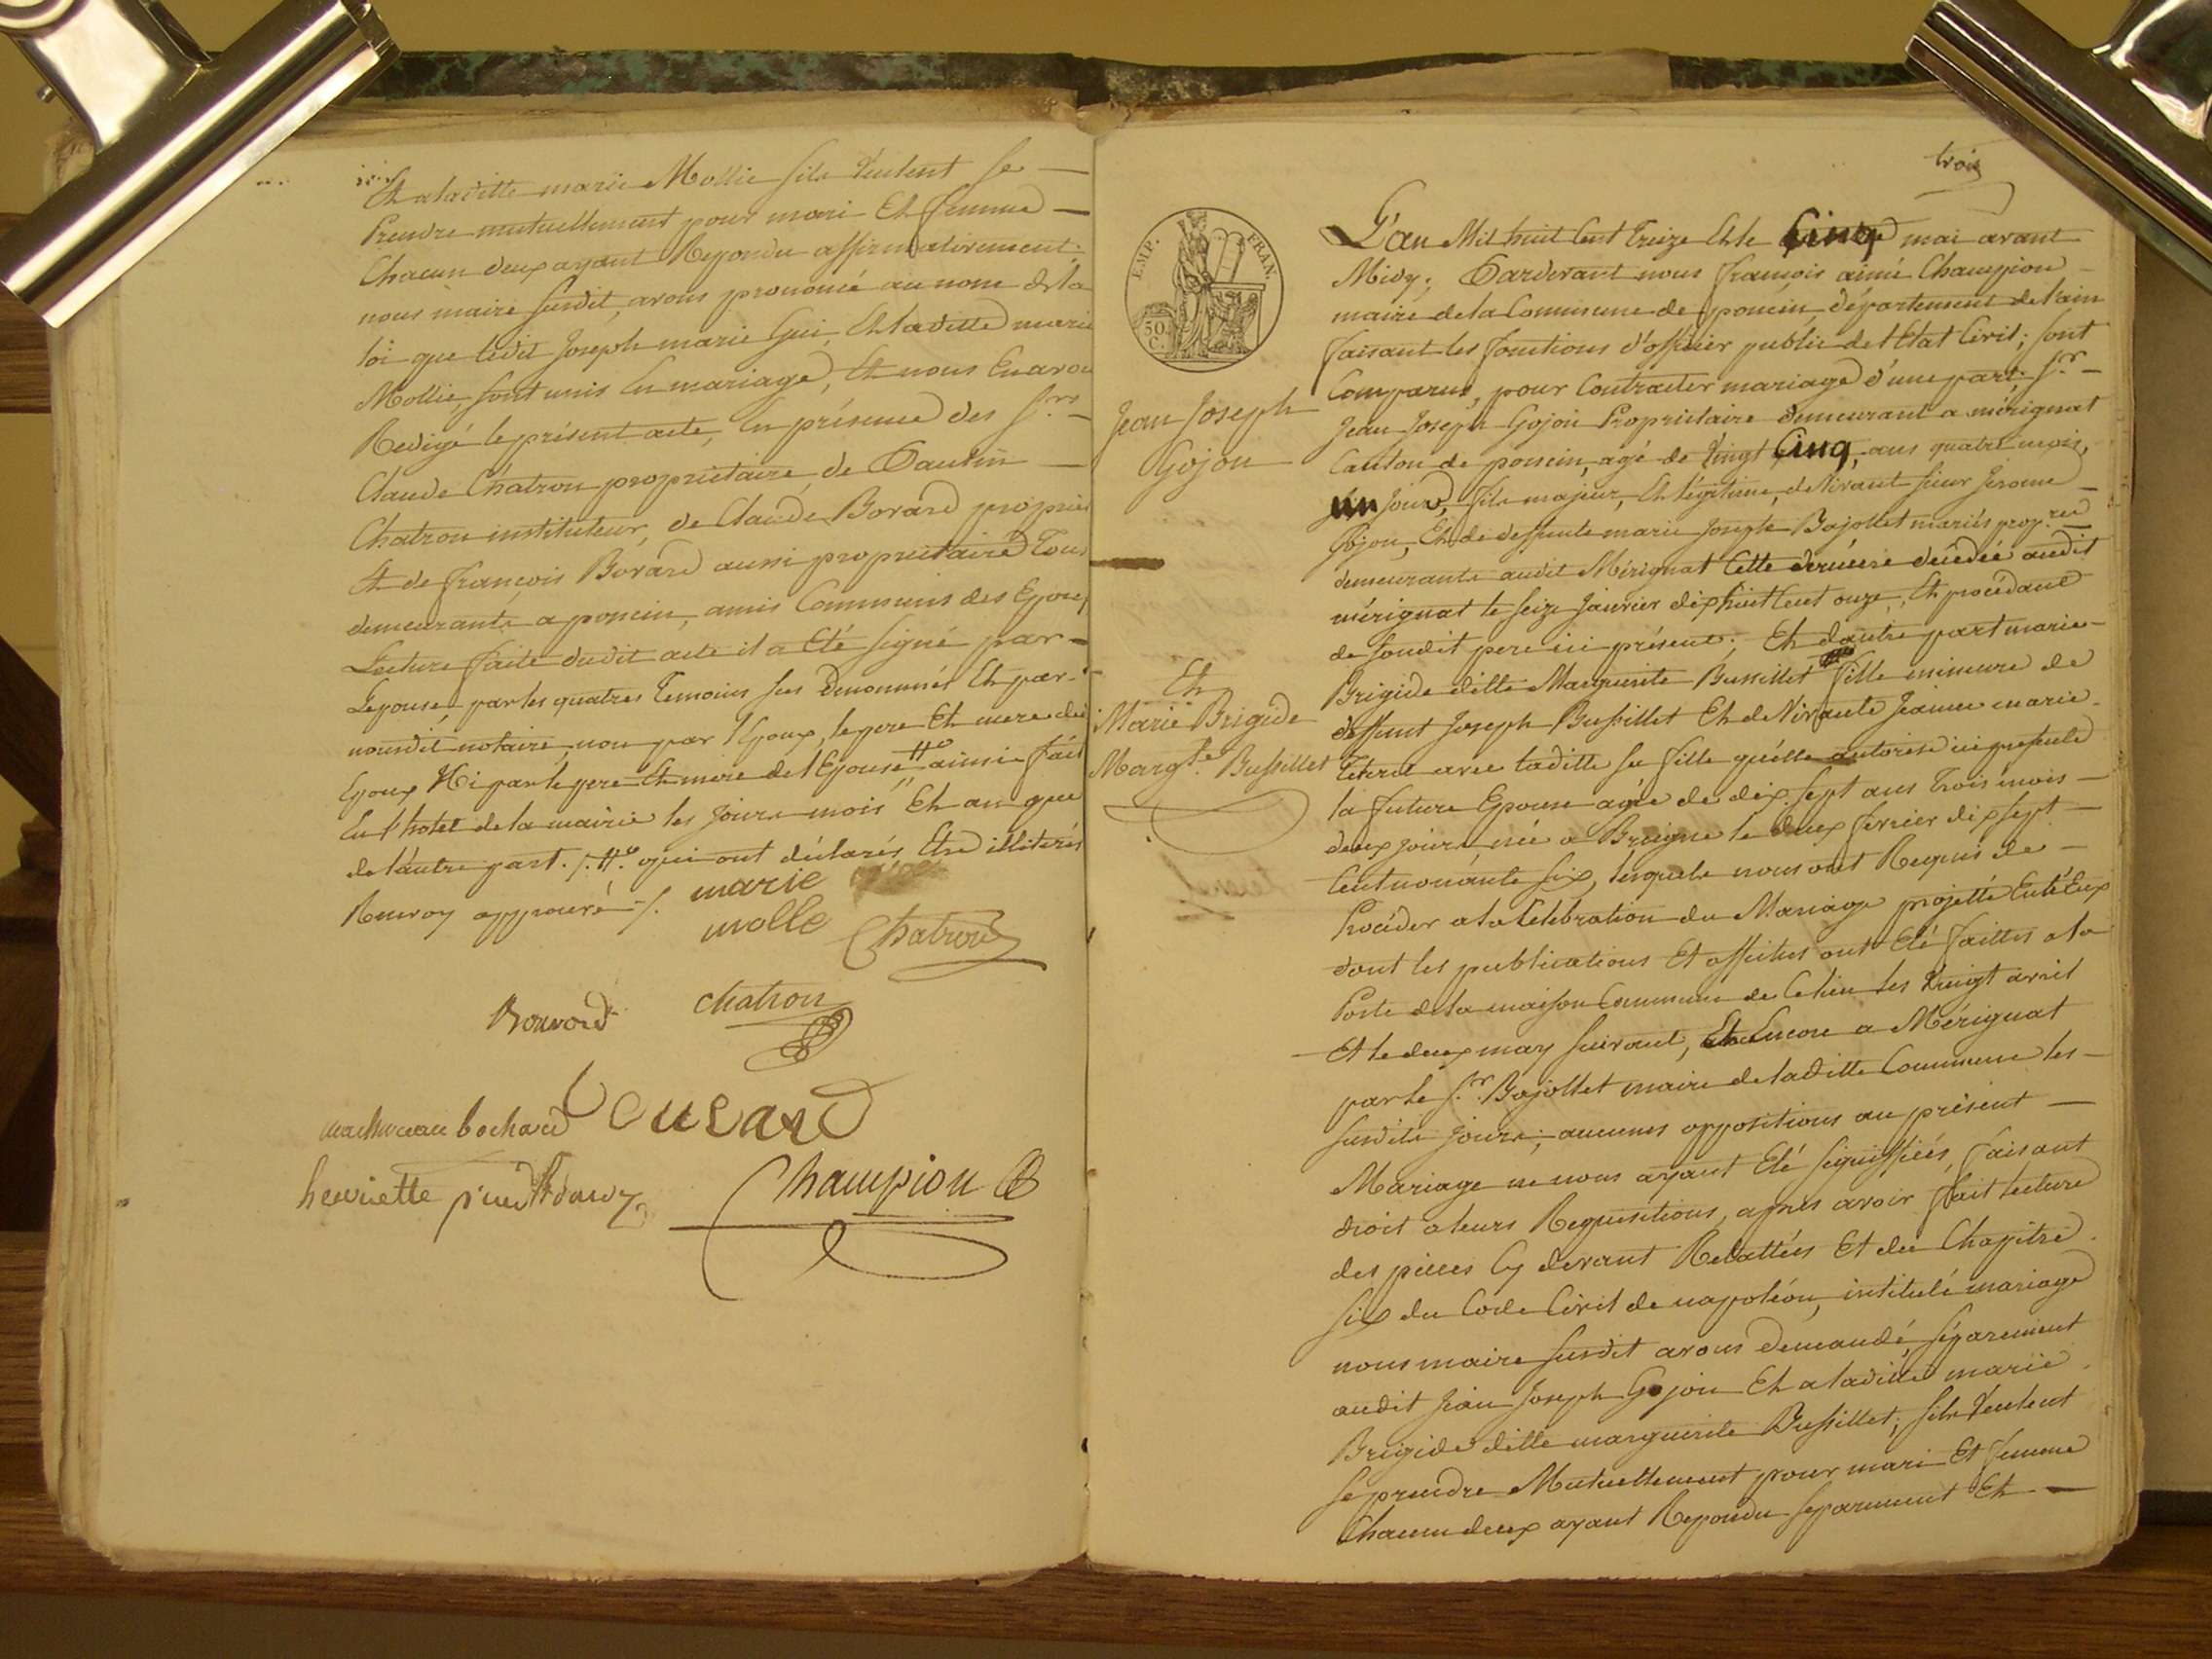 Et a laditte marie Mollie sils Veulent se
Prendre mutuellement pour mari Et femme
Chacun deux ayant Repondu affirmativement;
nous maire susdit, avons prononcé au nom de la
loi que ledit Joseph marie Gui, Et laditte marie
Mollie, sont unis En mariage, Et nous En avon
Redigé le présent acte, En présence des Srs
Claude Chatron propriétaire, de
Chatron instituteur, de Claude Borard propriet
Et de francois Borard aussi propriétaire Tous
demeurants a poncin, amis Communs des Epoux
Lecture faite dudit acte il a Eté signé par
Lepouse, par les quatres Temoins sus Denommés Et par
nousdit notaire, non par l'Epoux, le pere Et mere du
Epoux Ni par le pere Et mere de l'Epouse ainsi fait
En l'hotel de la mairie les jours mois Et an que
de l'autre part. qui ont déclarés Etre illiterés
Renvoy approuvé
marie
molle
Chatron
chatron
bochard
henriette
Champion
trois
EMP. FRAN.
50 C.
L'an Mil huit Cent Treize Et le Cinq mai avant
Midy; Pardevant nous francois aimé Champion
maire de la Commune de poncin, département de l'ain
faisant les fonctions d'officier public de l'Etat Civil; sont
Comparus, pour Contracter mariage d'une part; Sr
Jean Joseph Gojon Propriétaire demeurant a mérignat
Canton de poncin, agé de Vingt Cinq, ans quatre mois,
un jour, fils majeur, Et légitime, de Vivant sieur Jerome
Gojon, Et de deffunte marie Josephe Bajollet mariés propres
demeurants audit Mérignat Cette derniere décédée audit
mérignat le seize janvier dixhuit Cent onze, Et procédant
de sondit pere ici présent; Et d'autre part marie
Brigide ditte Marguerite Bussillet fille mineure de
deffunt Joseph Bussillet Et de Vivante Jeanne marie
avec laditte sa fille quelle autorise ici présente
la future Epouse agée de dix sept ans Trois mois
deux jours, née a le deux fevrier dix sept
Cent nonante six, lesquels nous ont Requis de
Procéder a la Célébration du Mariage projetté Entr'Eux
dont les publications Et affiches ont Eté faittes a la
Porte de la maison Commune de Ce lieu les Vingt avril
Et le deux may suivant, Et Encore a Mérignat
par le Sr. Bajollet maire de laditte Commune les
susdits jours; aucunes oppositions au présent
Mariage ne nous ayant Eté signiffiées, faisant
droit a leurs Requisitions, après avoir fait lecture
des pieces Cy devant Relattées Et du Chapitre
six du Code Civil de napoléon, intitulé mariage
nous maire susdit avons Demandé, séparement
audit Jean Joseph Gojon Et a laditte marie
Brigide ditte marguerite Bussillet, sils Veulent
se prendre Mutuellement pour mari Et femme
Chacun deux ayant Repondu separement Et
Jean Joseph
Gojon
Et
Marie Brigide
Margte Bussillet